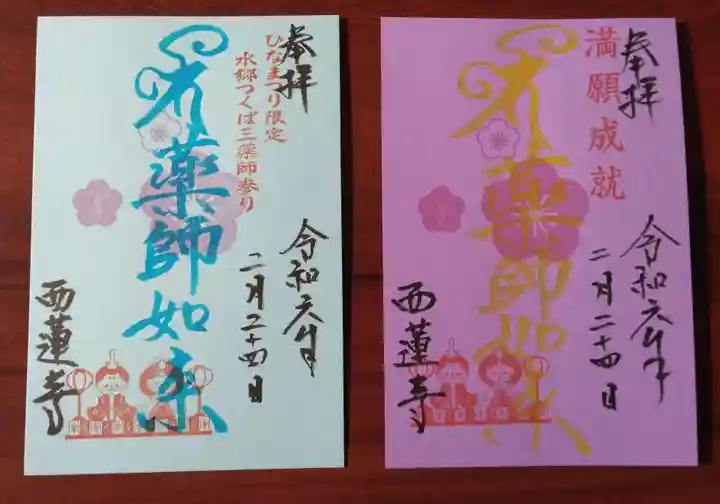 奉拝
ひなまつり限定
水郷つくば三薬師参り
薬師如来
令和六年
二月二十四日
西蓮寺
奉拝
満願成就
薬師如来
令和六年
二月二十四日
西蓮寺